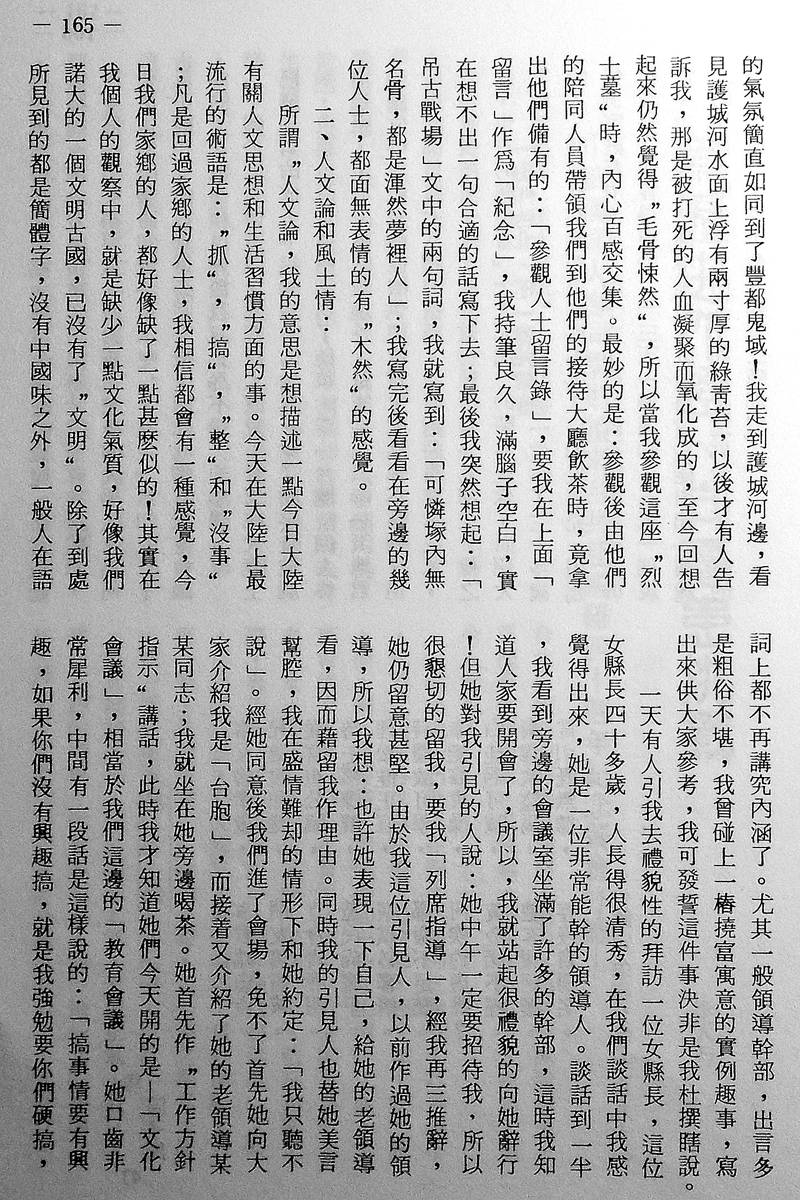 — 165 —
的氣氛簡直如同到了豐都鬼域！我走到護城河邊，看
見護城河水面上浮有兩寸厚的綠靑苔，以後才有人告
訴我，那是被打死的人血凝聚而氧化成的，至今回想
起來仍然覺得〞毛骨悚然〝，所以當我參觀這座〞烈
士墓〝時，內心百感交集。最妙的是：參觀後由他們
的陪同人員帶領我們到他們的接待大廳飲茶時，竟拿
出他們備有的：「參觀人士留言錄」，要我在上面「
留言」作爲「紀念」，我持筆良久，滿腦子空白，實
在想不出一句合適的話寫下去；最後我突然想起：「
吊古戰場」文中的兩句詞，我就寫到：「可憐塚內無
名骨，都是渾然夢裡人」；我寫完後看看在旁邊的幾
位人士，都面無表情的有〞木然〝的感覺。
二、人文論和風土情：
所謂〞人文論，我的意思是想描述一點今日大陸
有關人文思想和生活習慣方面的事。今天在大陸上最
流行的術語是：〞抓〝，〞搞〝，〞整〝和〞沒事〝
；凡是回過家鄉的人士，我相信都會有一種感覺，今
日我們家鄉的人，都好像缺了一點甚麼似的！其實在
我個人的觀察中，就是缺少一點文化氣質，好像我們
諾大的一個文明古國，已沒有了〞文明〝。除了到處
所見到的都是簡體字，沒有中國味之外，一般人在語
詞上都不再講究內涵了。尤其一般領導幹部，出言多
是粗俗不堪，我曾碰上一樁撓富寓意的實例趣事，寫
出來供大家參考，我可發誓這件事決非是我杜撰瞎說。
一天有人引我去禮貌性的拜訪一位女縣長，這位
女縣長四十多歲，人長得很清秀，在我們談話中我感
覺得出來，她是一位非常能幹的領導人。談話到一半
，我看到旁邊的會議室坐滿了許多的幹部，這時我知
道人家要開會了，所以，我就站起很禮貌的向她辭行
！但她對我引見的人說：她中午一定要招待我，所以
很懇切的留我，要我「列席指導」，經我再三推辭，
她仍留意甚堅。由於我這位引見人，以前作過她的領
導，所以我想：也許她表現一下自己，給她的老領導
看，因而藉留我作理由。同時我的引見人也替她美言
幫腔，我在盛情難却的情形下和她約定：「我只聽不
說」。經她同意後我們進了會場，免不了首先她向大
家介紹我是「台胞」，而接着又介紹了她的老領導某
某同志；我就坐在她旁邊喝茶。她首先作〞工作方針
指示〝講話，此時我才知道她們今天開的是—「文化
會議」，相當於我們這邊的「教育會議」。她口齒非
常犀利，中間有一段話是這樣說的：「搞事情要有興
趣，如果你們沒有興趣搞，就是我強勉要你們硬搞，